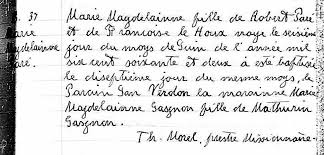 B. 37
Marie Magdelainne fille de Robert Paré
Marie et de Francoise le Houx naye le seisième
Magdelainne jour du moys de Juin de l'année mil
Paré. six cent soixante et deux à esté baptisée
le diseptieme jour du mesme moys, le
Parain Jan Verdon la marainne Marie
Magdelainne Gasgnon fille de Mathurin
Gasgnon.
Th. Morel, prestre Missionnaire